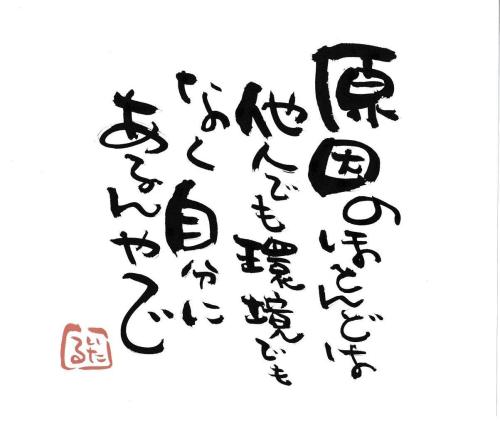 原因のほとんどは
他人でも環境でも
なく自分に
あるんやで
いたる